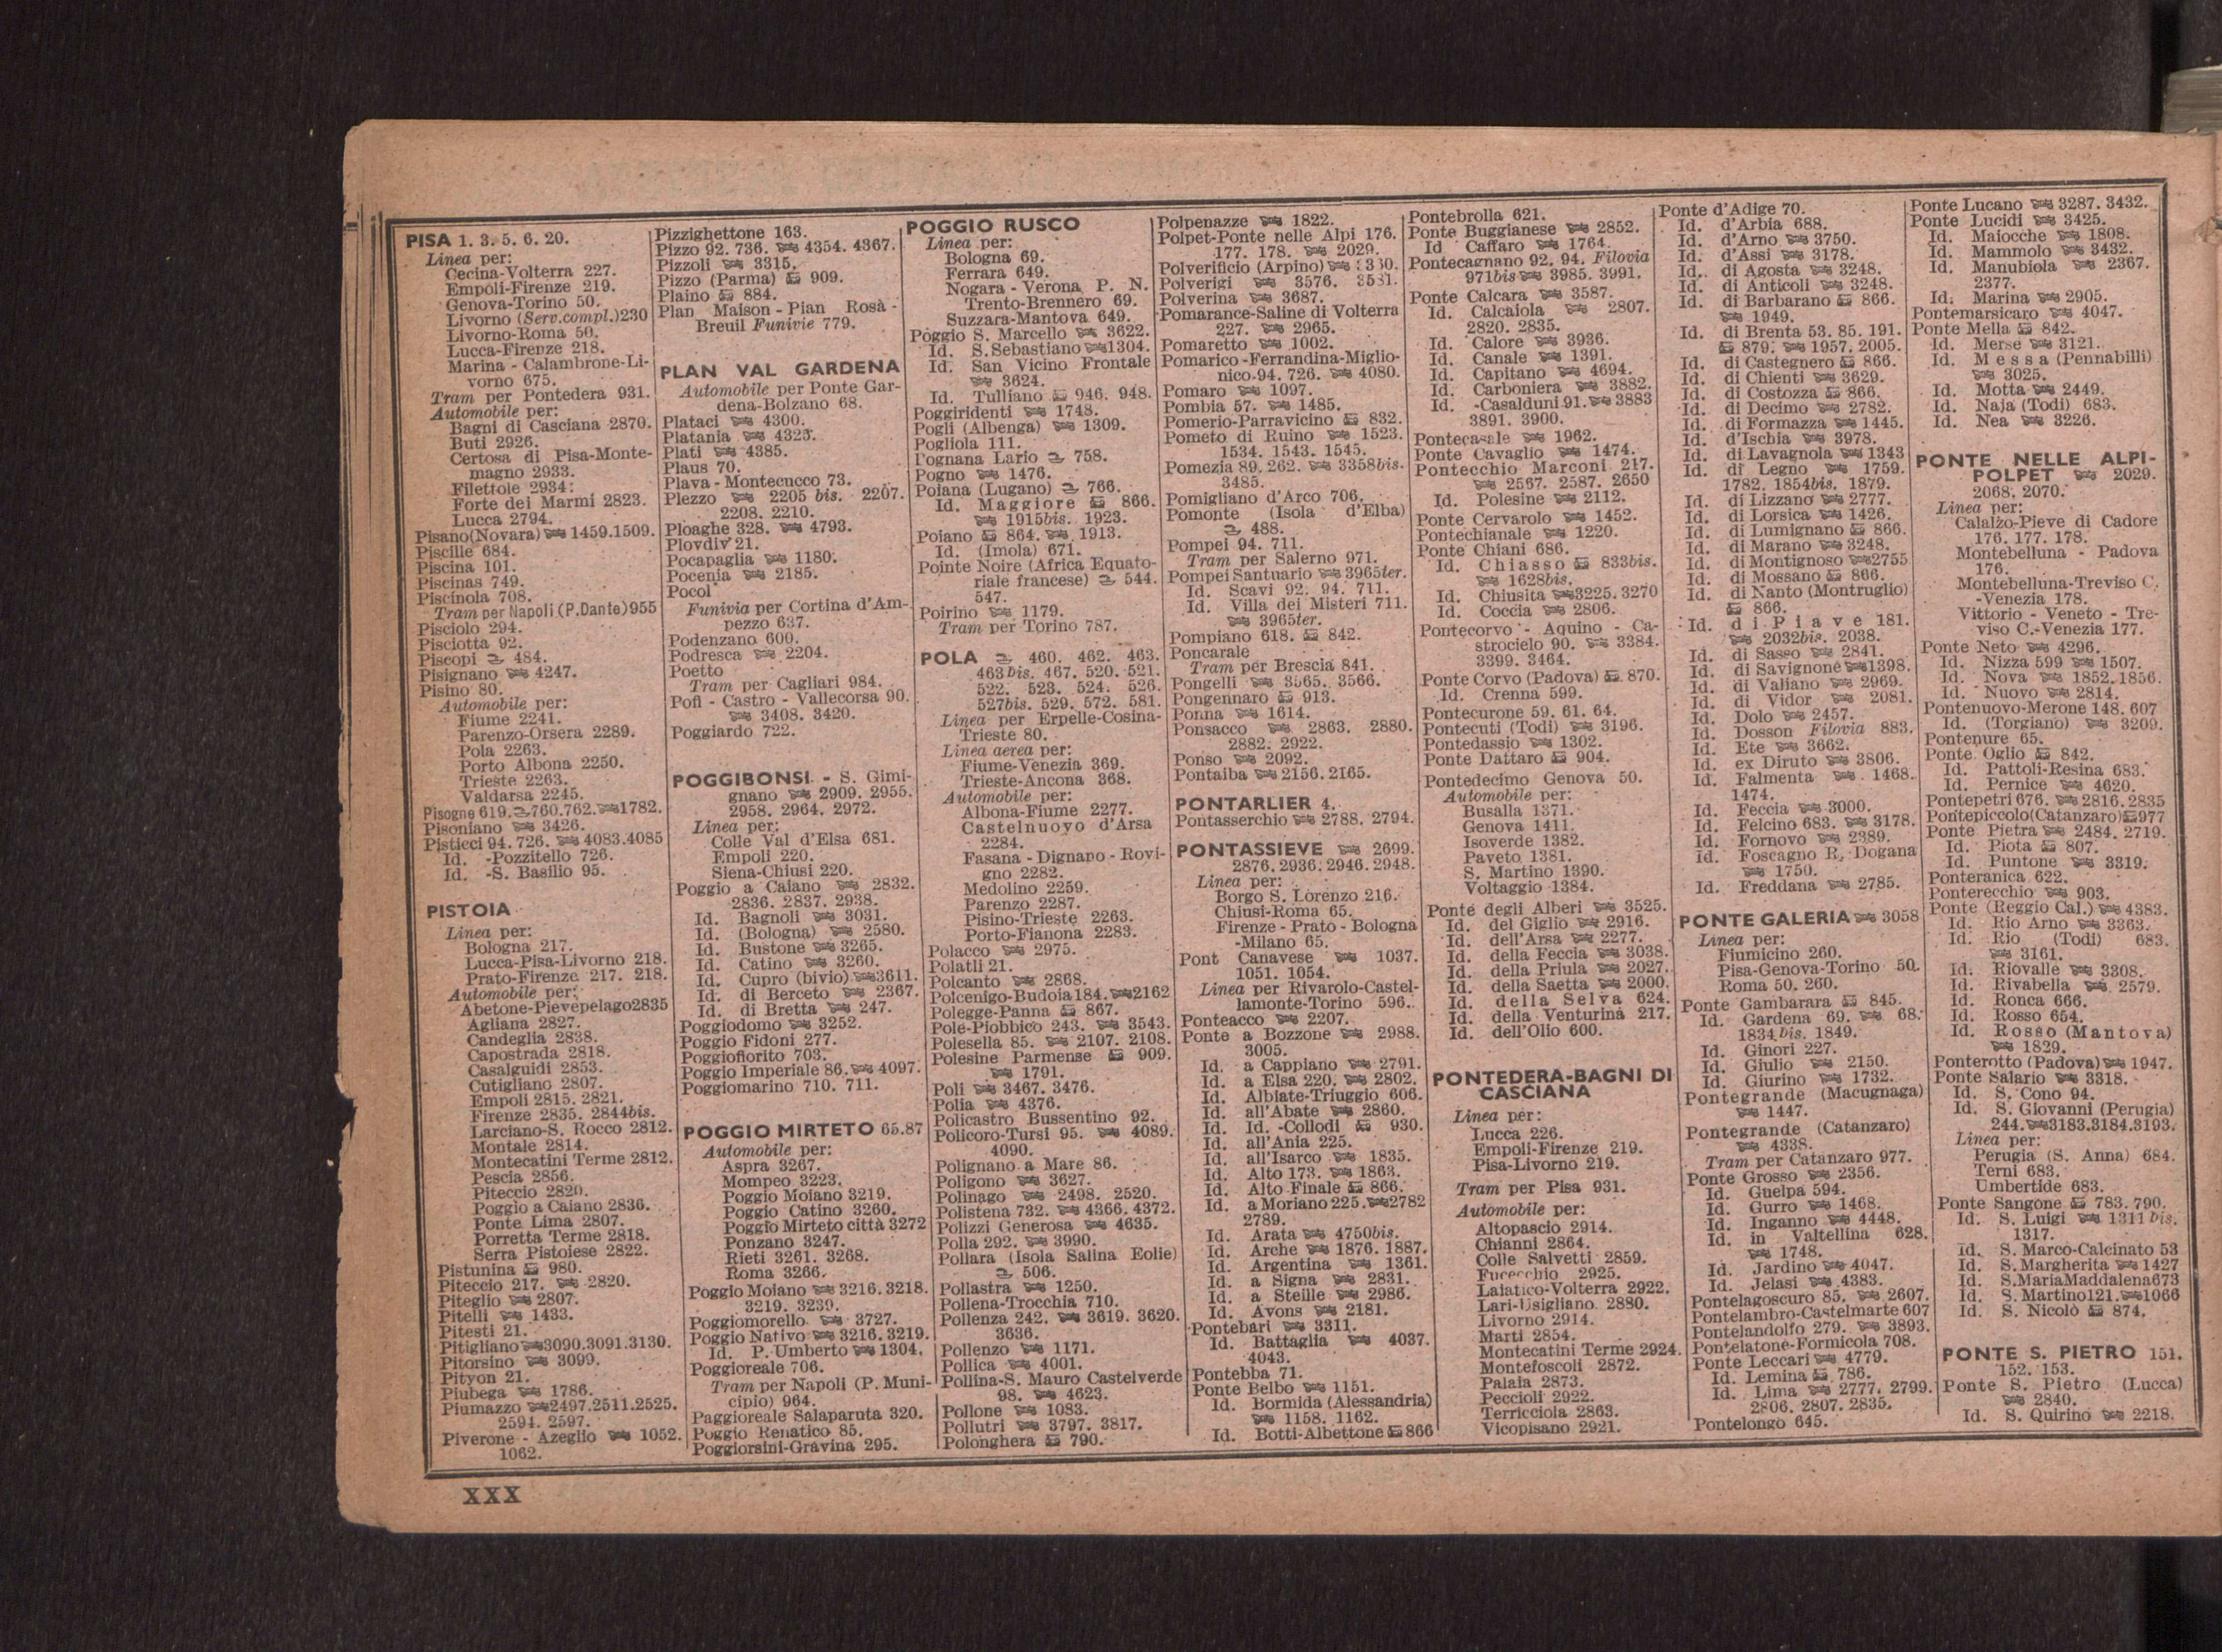 PISA 1. 3. 5. 6. 20.
Linea per:
Cecina-Volterra 227.
Empoli-Firenze 219.
Genova-Torino 50.
Livorno (Serv.compl.)230
Livorno-Roma 50.
Lucca-Firenze 218.
Marina - Calambrone-Li-
vorno 675.
Tram per Pontedera 931.
Automobile per:
Bagni di Casciana 2870.
Buti 2926.
Certosa di Pisa-Monte-
magno 2933.
Filettole 2934.
Forte dei Marmi 2823.
Lucca 2794.
Pisano(Novara) 1459.1509.
Piscille 684.
Piscina 101.
Piscinas 749.
Piscinola 708.
Tram per Napoli (P.Dante)955
Pisciolo 294.
Pisciotta 92.
Piscopi 484.
Pisignano 4247.
Pisino 80.
Automobile per:
Fiume 2241.
Parenzo-Orsera 2289.
Pola 2263.
Porto Albona 2250.
Trieste 2263.
Valdarsa 2245.
Pisogne 619. 760.762. 1782.
Pisoniano 3426.
Pisticci 94. 726. 4083.4085
Id. -Pozzitello 726.
Id. -S. Basilio 95.
PISTOIA
Linea per:
Bologna 217.
Lucca-Pisa-Livorno 218.
Prato-Firenze 217. 218.
Automobile per:
Abetone-Pievepelago2835
Agliana 2827.
Candeglia 2838.
Capostrada 2818.
Casalguidi 2853.
Cutigliano 2807.
Empoli 2815. 2821.
Firenze 2835. 2844bis.
Larciano-S. Rocco 2812.
Montale 2814.
Montecatini Terme 2812.
Pescia 2856.
Piteccio 2820.
Poggio a Caiano 2836.
Ponte Lima 2807.
Porretta Terme 2818.
Serra Pistoiese 2822.
Pistunina 980.
Piteccio 217. 2820.
Piteglio 2807.
Pitelli 1433.
Pitesti 21.
Pitigliano 3090.3091.3130.
Pitorsino 3099.
Pityon 21.
Piubega 1786.
Piumazzo 2497.2511.2525.
2594. 2597.
Piverone - Azeglio 1052.
1062.
Pizzighettone 163.
Pizzo 92. 736. 4354. 4367.
Pizzoli 3315.
Pizzo (Parma) 909.
Plaino 884.
Plan Maison - Pian Rosà -
Breuil Funivie 779.
PLAN VAL GARDENA
Automobile per Ponte Gar-
dena-Bolzano 68.
Plataci 4300.
Platania 4325.
Plati 4385.
Plaus 70.
Plava - Montecucco 73.
Plezzo 2205 bis. 2207.
2208. 2210.
Ploaghe 328. 4793.
Plovdiv 21.
Pocapaglia 1180.
Pocenia 2185.
Pocol
Funivia per Cortina d'Am-
pezzo 637.
Podenzano 600.
Podresca 2204.
Poetto
Tram per Cagliari 984.
Pofi - Castro - Vallecorsa 90.
3408. 3420.
Poggiardo 722.
POGGIBONSI - S. Gimi-
gnano 2909. 2955.
2958. 2964. 2972.
Linea per:
Colle Val d'Elsa 681.
Empoli 220.
Siena-Chiusi 220.
Poggio a Caiano 2832.
2836. 2837. 2938.
Id. Bagnoli 3031.
Id. (Bologna) 2580.
Id. Bustone 3265.
Id. Catino 3260.
Id. Cupro (bivio) 3611.
Id. di Berceto 2367.
Id. di Bretta 247.
Poggiodomo 3252.
Poggio Fidoni 277.
Poggiofiorito 703.
Poggio Imperiale 86. 4097.
Poggiomarino 710. 711.
POGGIO MIRTETO 65.87
Automobile per:
Aspra 3267.
Mompeo 3223.
Poggio Moiano 3219.
Poggio Catino 3260.
Poggio Mirteto città 3272
Ponzano 3247.
Rieti 3261. 3268.
Roma 3266.
Poggio Moiano 3216. 3218.
3219. 3239.
Poggiomorello 3727.
Poggio Nativo 3216. 3219.
Id. P. Umberto 1304.
Poggioreale 706.
Tram per Napoli (P. Muni-
cipio) 964.
Paggioreale Salaparuta 320.
Poggio Renatico 85.
Poggiorsini-Gravina 295.
POGGIO RUSCO
Linea per:
Bologna 69.
Ferrara 649.
Nogara - Verona P. N.
Trento-Brennero 69.
Suzzara-Mantova 649.
Poggio S. Marcello 3622.
Id. S.Sebastiano 1304.
Id. San Vicino Frontale
3624.
Id. Tulliano 946. 948.
Poggiridenti 1748.
Pogli (Albenga) 1309.
Pogliola 111.
Pognana Lario 758.
Pogno 1476.
Poiana (Lugano) 766.
Id. Maggiore 866.
1915bis. 1923.
Poiano 864. 1913.
Id. (Imola) 671.
Pointe Noire (Africa Equato-
riale francese) 544.
547.
Poirino 1179.
Tram per Torino 787.
POLA 460. 462. 463.
463bis. 467. 520. 521.
522. 523. 524. 526.
527bis. 529. 572. 581.
Linea per Erpelle-Cosina-
Trieste 80.
Linea aerea per:
Fiume-Venezia 369.
Trieste-Ancona 368.
Automobile per:
Albona-Fiume 2277.
Castelnuovo d'Arsa
2284.
Fasana - Dignano - Rovi-
gno 2282.
Medolino 2259.
Parenzo 2287.
Pisino-Trieste 2263.
Porto-Fianona 2283.
Polacco 2975.
Polatli 21.
Polcanto 2868.
Polcenigo-Budoia184. 2162
Polegge-Panna 867.
Pole-Piobbico 243. 3543.
Polesella 85. 2107. 2108.
Polesine Parmense 909.
1791.
Poli 3467. 3476.
Polia 4376.
Policastro Bussentino 92.
Policoro-Tursi 95. 4089.
4090.
Polignano a Mare 86.
Poligono 3627.
Polinago 2498. 2520.
Polistena 732. 4366. 4372.
Polizzi Generosa 4635.
Polla 292. 3990.
Pollara (Isola Salina Eolie)
506.
Pollastra 1250.
Pollena-Trocchia 710.
Pollenza 242. 3619. 3620.
3636.
Pollenzo 1171.
Pollica 4001.
Pollina-S. Mauro Castelverde
98. 4623.
Pollone 1083.
Pollutri 3797. 3817.
Polonghera 790.
Polpenazze 1822.
Polpet-Ponte nelle Alpi 176.
177. 178. 2029.
Polverificio (Arpino)
Polverigi 3576. 3581.
Polverina 3687.
Pomarance-Saline di Volterra
227. 2965.
Pomaretto 1002.
Pomarico-Ferrandina-Miglio-
nico.94. 726. 4080.
Pomaro 1097.
Pombia 57. 1485.
Pomerio-Parravicino 832.
Pometo di Ruino 1523.
1534. 1543. 1545.
Pomezia 89. 262. 3358bis.
3485.
Pomigliano d'Arco 706.
Pomonte (Isola d'Elba)
488.
Pompei 94. 711.
Tram per Salerno 971.
Pompei Santuario 3965ter.
Id. Scavi 92. 94. 711.
Id. Villa dei Misteri 711.
3965ter.
Pompiano 618. 842.
Poncarale
Tram per Brescia 841.
Pongelli 3565. 3566.
Pongennaro 913.
Ponna 1614.
Ponsacco 2863. 2880.
2882. 2922.
Ponso 2092.
Pontaiba 2156. 2165.
PONTARLIER 4.
Pontasserchio 2788. 2794.
PONTASSIEVE 2699.
2876. 2936. 2946. 2948.
Linea per:
Borgo S. Lorenzo 216.
Chiusi-Roma 65.
Firenze - Prato - Bologna
-Milano 65.
Pont Canavese 1037.
1051. 1054.
Linea per Rivarolo-Castel-
lamonte-Torino 596.
Ponteacco 2207.
Ponte a Bozzone 2988.
3005.
Id. a Cappiano 2791.
Id. a Elsa 220. 2802.
Id. Albiate-Triuggio 606.
Id. all'Abate 2860.
Id. Id. -Collodi 930.
Id. all'Ania 225.
Id. all'Isarco 1835.
Id. Alto 173. 1863.
Id. Alto Finale 866.
Id. a Moriano 225. 2782
2789.
Id. Arata 4750bis.
Id. Arche 1876. 1887.
Id. Argentina 1361.
Id. a Signa 2831.
Id. a Steille 2986.
Id. Avons 2181.
Pontebari 3311.
Id. Battaglia 4037.
4043.
Pontebba 71.
Ponte Belbo 1151.
Id. Bormida (Alessandria)
1158. 1162.
Id. Botti-Albettone 866
Pontebrolla 621.
Ponte Buggianese 2852.
Id Caffaro 1764.
Pontecagnano 92. 94. Filovia
971bis 3985. 3991.
Ponte Calcara 3587.
Id. Calcaiola 2807.
2820. 2835.
Id. Calore 3936.
Id. Canale 1391.
Id. Capitano 4694.
Id. Carboniera 3882.
Id. -Casalduni 91. 3883
3891. 3900.
Pontecasale 1962.
Ponte Cavaglio 1474.
Pontecchio Marconi 217.
2567. 2587. 2650
Id. Polesine 2112.
Ponte Cervarolo 1452.
Pontechianale 1220.
Ponte Chiani 686.
Id. Chiasso 833bis.
1628bis.
Id. Chiusita 3225. 3270
Id. Coccia 2806.
Pontecorvo - Aquino - Ca-
strocielo 90. 3384.
3399. 3464.
Ponte Corvo (Padova) 870.
Id. Crenna 599.
Pontecurone 59. 61. 64.
Pontecuti (Todi) 3196.
Pontedassio 1302.
Ponte Dattaro 904.
Pontedecimo Genova 50.
Automobile per:
Busalla 1371.
Genova 1411.
Isoverde 1382.
Paveto 1381.
S. Martino 1390.
Voltaggio 1384.
Ponte degli Alberi 3525.
Id. del Giglio 2916.
Id. dell'Arsa 2277.
Id. della Feccia 3038.
Id. della Priula 2027.
Id. della Saetta 2000.
Id. della Selva 624.
Id. della Venturina 217.
Id. dell'Olio 600.
PONTEDERA-BAGNI DI
CASCIANA
Linea per:
Lucca 226.
Empoli-Firenze 219.
Pisa-Livorno 219.
Tram per Pisa 931.
Automobile per:
Altopascio 2914.
Chianni 2864.
Colle Salvetti 2859.
Fucecchio 2925.
Laiatico-Volterra 2922.
Lari-Usigliano 2880.
Livorno 2914.
Marti 2854.
Montecatini Terme 2924.
Montefoscoli 2872.
Palaia 2873.
Peccioli 2922.
Terricciola 2863.
Vicopisano 2921.
Ponte d'Adige 70.
Id. d'Arbia 688.
Id. d'Arno 3750.
Id. d'Assi 3178.
Id. di Agosta 3248.
Id. di Anticoli 3248.
Id. di Barbarano 866.
1949.
Id. di Brenta 53. 85. 191.
879. 1957. 2005.
Id. di Castegnero 866.
Id. di Chienti 3629.
Id. di Costozza 866.
Id. di Decimo 2782.
Id. di Formazza 1445.
Id. d'Ischia 3978.
Id. di Lavagnola 1343
Id. di Legno 1759.
1782. 1854bis. 1879.
Id. di Lizzano 2777.
Id. di Lorsica 1426.
Id. di Lumignano 866.
Id. di Marano 3248.
Id. di Montignoso 2755
Id. di Mossano 866.
Id. di Nanto (Montruglio)
866.
Id. di Piave 181.
2032bis. 2038.
Id. di Sasso 2841.
Id. di Savignone 1398.
Id. di Valiano 2969.
Id. di Vidor 2081.
Id. Dolo 2457.
Id. Dosson Filovia 883.
Id. Ete 3662.
Id. ex Diruto 3806.
Id. Falmenta 1468.
1474.
Id. Feccia 3000.
Id. Felcino 683. 3178.
Id. Fornovo 2389.
Id. Foscagno R. Dogana
1750.
Id. Freddana 2785.
PONTE GALERIA 3058
Linea per:
Fiumicino 260.
Pisa-Genova-Torino 50.
Roma 50. 260.
Ponte Gambarara 845.
Id. Gardena 69. 68.
1834bis. 1849.
Id. Ginori 227.
Id. Giulio 2150.
Id. Giurino 1732.
Pontegrande (Macugnaga)
1447.
Pontegrande (Catanzaro)
4338.
Tram per Catanzaro 977.
Ponte Grosso 2356.
Id. Guelpa 594.
Id. Gurro 1468.
Id. Inganno 4448.
Id. in Valtellina 628.
1748.
Id. Jardino 4047.
Id. Jelasi 4383.
Pontelagoscuro 85. 2607.
Pontelambro-Castelmarte 607
Pontelandolfo 279. 3893.
Pontelatone-Formicola 708.
Ponte Leccari 4779.
Id. Lemina 786.
Id. Lima 2777. 2799.
2806. 2807. 2835.
Pontelongo 645.
Ponte Lucano 3287. 3432.
Ponte Lucidi 3425.
Id. Maiocche 1808.
Id. Mammolo 3432.
Id. Manubiola 2367.
2377.
Id. Marina 2905.
Pontemarsicaro 4047.
Ponte Mella 842.
Id. Merse 3121.
Id. Messa (Pennabilli)
3025.
Id. Motta 2449.
Id. Naja (Todi) 683.
Id. Nea 3226.
PONTE NELLE ALPI-
POLPET 2029.
2068. 2070.
Linea per:
Calalzo-Pieve di Cadore
176. 177. 178.
Montebelluna - Padova
176.
Montebelluna-Treviso C.
-Venezia 178.
Vittorio - Veneto - Tre-
viso C.-Venezia 177.
Ponte Neto 4296.
Id. Nizza 599 1507.
Id. Nova 1852.1856.
Id. Nuovo 2814.
Pontenuovo-Merone 148. 607
Id. (Torgiano) 3209.
Pontenure 65.
Ponte Oglio 842.
Id. Pattoli-Resina 683.
Id. Pernice 4620.
Pontepetri 676. 2816. 2835
Pontepiccolo(Catanzaro) 977
Ponte Pietra 2484. 2719.
Id. Piota 807.
Id. Puntone 3319.
Ponteranica 622.
Ponterecchio 903.
Ponte (Reggio Cal.) 4383.
Id. Rio Arno 3363.
Id. Rio (Todi) 683.
3161.
Id. Riovalle 3308.
Id. Rivabella 2579.
Id. Ronca 666.
Id. Rosso 654.
Id. Rosso (Mantova)
1829.
Ponterotto (Padova) 1947.
Ponte Salario 3318.
Id. S. Cono 94.
Id. S. Giovanni (Perugia)
244. 3183.3184.3193.
Linea per:
Perugia (S. Anna) 684.
Terni 683.
Umbertide 683.
Ponte Sangone 783. 790.
Id. S. Luigi 1311 bis.
1317.
Id. S. Marco-Calcinato 53
Id. S. Margherita 1427
Id. S.MariaMaddalena673
Id. S. Martino121. 1066
Id. S. Nicolò 874.
PONTE S. PIETRO 151.
152. 153.
Ponte S. Pietro (Lucca)
2840.
Id. S. Quirino 2218.
XXX